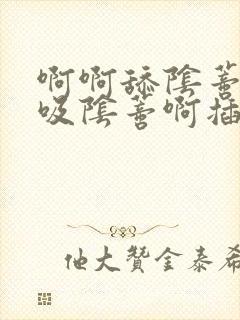 啊啊舔陰蒂
吸陰蒂啊插
他大贊金泰希